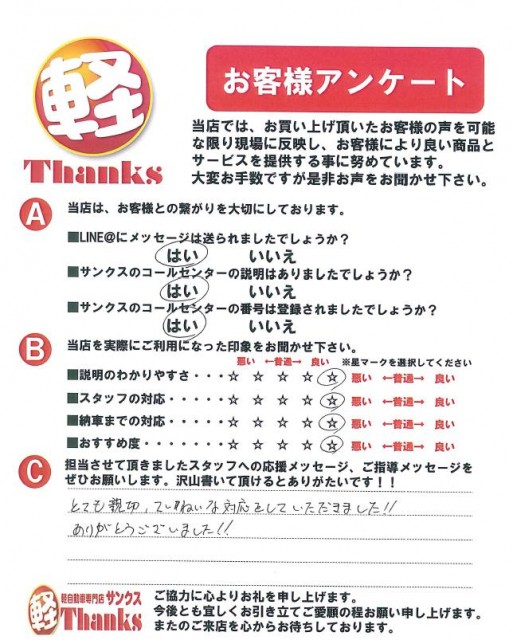 軽
Thanks
お客様アンケート
当店では、お買い上げ頂いたお客様の声を可能
な限り現場に反映し、お客様により良い商品と
サービスを提供する事に努めています。
大変お手数ですが是非お声をお聞かせ下さい。
A 当店は、お客様との繋がりを大切にしております。
■LINE@にメッセージは送られましたでしょうか？
はい いいえ
■サンクスのコールセンターの説明はありましたでしょうか？
はい いいえ
■サンクスのコールセンターの番号は登録されましたでしょうか？
はい いいえ
B 当店を実際にご利用になった印象をお聞かせ下さい。
悪い ←普通→ 良い ※星マークを選択してください
■説明のわかりやすさ・・・・☆ ☆ ☆ ☆ ☆ 悪い ←普通→ 良い
■スタッフの対応・・・・・・☆ ☆ ☆ ☆ ☆ 悪い ←普通→ 良い
■納車までの対応・・・・・・☆ ☆ ☆ ☆ ☆ 悪い ←普通→ 良い
■おすすめ度・・・・・・・・☆ ☆ ☆ ☆ ☆ 悪い ←普通→ 良い
C 担当させて頂きましたスタッフへの応援メッセージ、ご指導メッセージを
ぜひお願いします。沢山書いて頂けるとありがたいです！！
とても親切、ていねいな対応をしていただきました!!
ありがとうございました!!
軽 軽自動車専門店 サンクス
Thanks
ご協力に心よりお礼を申し上げます。
今後とも宜しくお引き立てご愛顧の程お願い申し上げます。
またのご来店を心からお待ちしております。